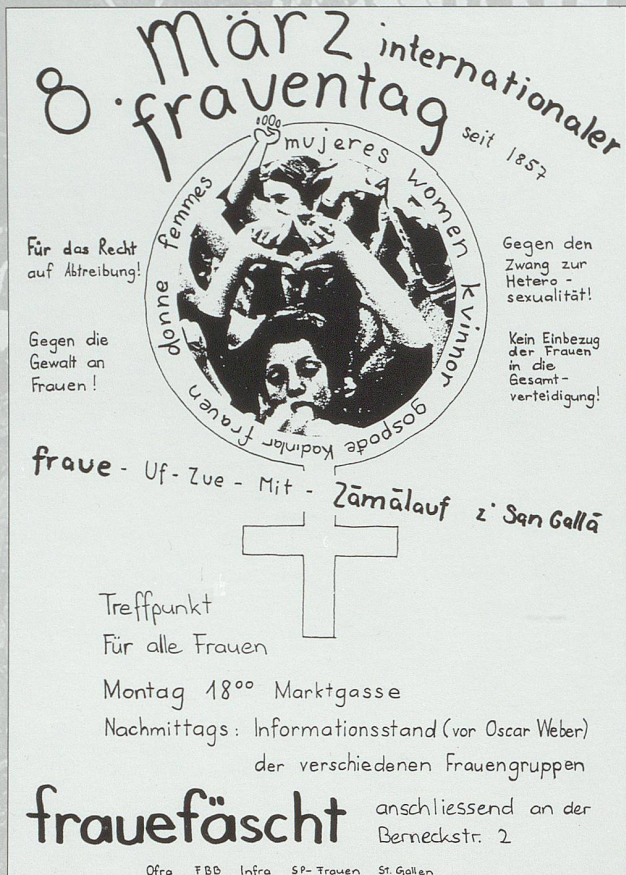 8. märz internationaler
frauentag seit 1857
mujeres women kvinnor gospođe kadınlar frauen donne femmes
Für das Recht
auf Abtreibung!
Gegen die
Gewalt an
Frauen!
Gegen den
Zwang zur
Hetero-
sexualität!
Kein Einbezug
der Frauen
in die
Gesamt-
verteidigung!
fraue - Uf - Zue - Mit - Zämälauf z' San Gallä
Treffpunkt
Für alle Frauen
Montag 18⁰⁰ Marktgasse
Nachmittags: Informationsstand (vor Oscar Weber)
der verschiedenen Frauengruppen
frauefäscht anschliessend an der
Berneckstr. 2
Ofra FBB Infra SP-Frauen St. Gallen